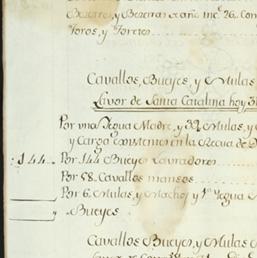 Bezerros, y Bezerras de año inc.º 26. Con
Toros, y Toretes
Cavallos, Bueyes, y Mulas
Lavor de Santa Catalina hoy 31
Por una Yegua Madre, y 32 Mulas, y
y Carga existentes en la Recua de
:144.. Por 144 Bueyes Lavradores
Por 58. Cavallos mansos
Por 6. Mulas, y Machos, y 1.ª Yegua
y Bueyes
Cavallos Bueyes, y Mulas